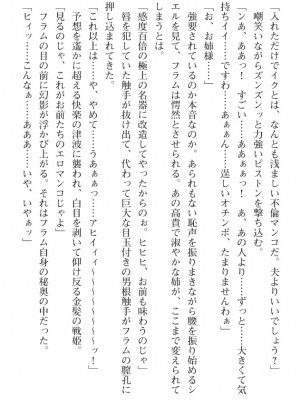 「入れただけでイクとは、なんと浅ましい不倫マンコだ。夫よりいいでしょう?」
嘲笑いながらズンズンと力強いピストンを撃ち込む。
「ンあ、ああっ! すごい……ああぁんっ! あ、あの人より……ずっと……大きくて気
持ちイイ……ですわ……あぁぁん……逞しいオチンポ、たまりませんわぁ」
「お、お姉様……」
強要されているのか本音なのか。あられもない恥声を振りまきながら腰を振り始めるシ
エルを見て、フラムは愕然とさせられる。あの高貴で淑やかな姉が、ここまで変えられて
しまうとは。
「感度百倍の極上の名器に改造してやったからのぉ。ヒヒヒ、お前も味わうのじゃ」
唇を犯していた触手が抜け出て、代わって巨大な目玉付きの男根触手がフラムの膣孔に
押し込まれてきた。
「これ以上は……や、やめて……うあぁぁっ……アヒイィィ〜〜〜〜〜〜〜〜ッ!」
予想を遙かに超える快楽の津波に襲われ、白目を剥いて仰け反る金髪の戦姫。
「見るのじゃ、これがお前たちのエロマンコじゃよ」
フラムの目の前に幻影が浮かび上がる。それはフラム自身の秘奥の中だった。
「ヒィッ……こんなぁ……あああ……いや、いやぁッ」